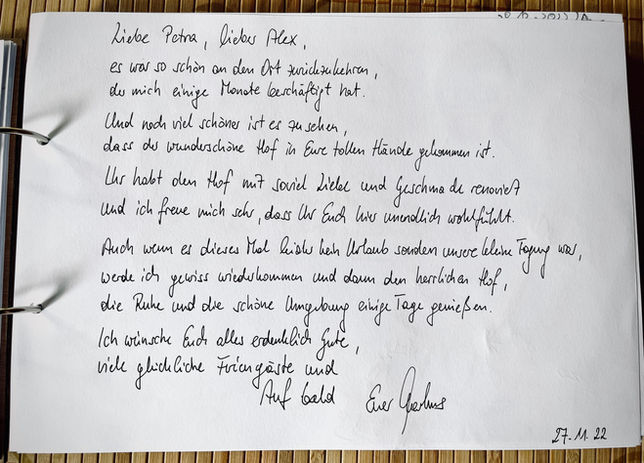 Liebe Petra, lieber Alex,
es war so schön an den Ort zurückzukehren,
der mich einige Monate beschäftigt hat.
Und noch viel schöner ist es zu sehen,
dass der wunderschöne Hof in Eure tollen Hände gekommen ist.
Ihr habt den Hof mit soviel Liebe und Geschmack renoviert
und ich freue mich sehr, dass Ihr Euch hier unendlich wohlfühlt.
Auch wenn es dieses Mal leider kein Urlaub sondern unsere kleine Tagung war,
werde ich gewiss wiederkommen und dann den herrlichen Hof,
die Ruhe und die schöne Umgebung einige Tage genießen.
Ich wünsche Euch alles erdenklich Gute,
viele glückliche Feriengäste und
Auf bald Euer
27.11.22